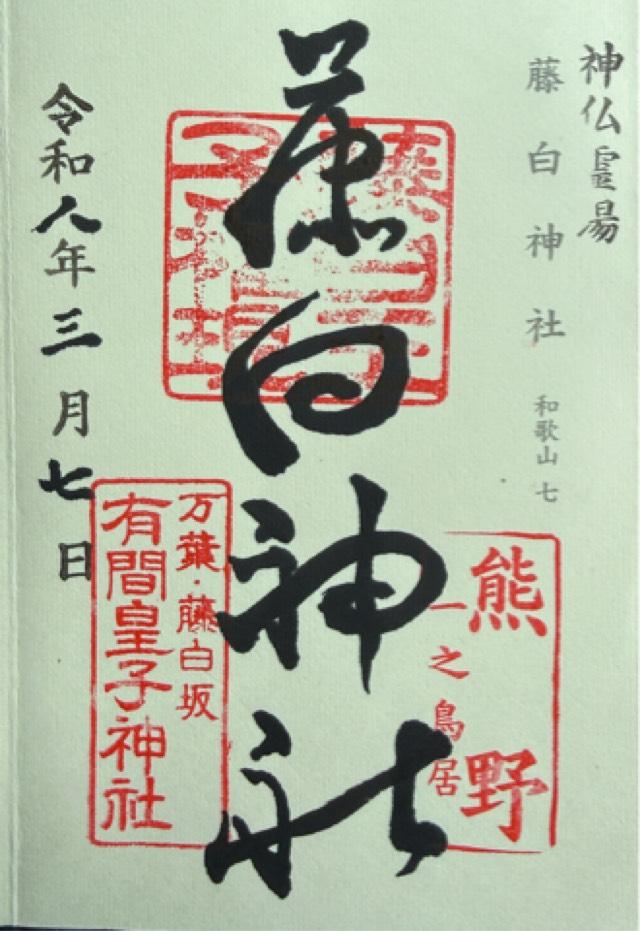 神仏霊場
藤白神社 和歌山七
藤白神社
熊野
一之鳥居
万葉・藤白坂
有間皇子神社
令和八年三月七日